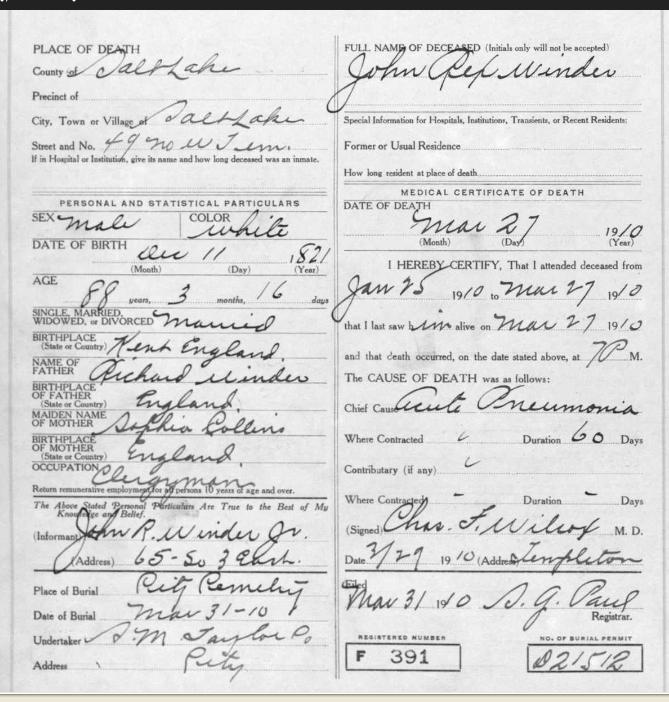 PLACE OF DEATH
County of Salt Lake
Precinct of
City, Town or Village of Salt Lake
Street and No. 49 no W Tem.
If in Hospital or Institution, give its name and how long deceased was an inmate.
PERSONAL AND STATISTICAL PARTICULARS
SEX male COLOR white
DATE OF BIRTH Dec 11 1821
(Month) (Day) (Year)
AGE
88 years, 3 months, 16 days
SINGLE, MARRIED,
WIDOWED, or DIVORCED Married
BIRTHPLACE
(State or Country) Kent England.
NAME OF
FATHER Richard Winder
BIRTHPLACE
OF FATHER
(State or Country) England.
MAIDEN NAME
OF MOTHER Sophia Collins
BIRTHPLACE
OF MOTHER
(State or Country) England
OCCUPATION Clergyman
Return remunerative employment for all persons 10 years of age and over.
The Above Stated Personal Particulars Are True to the Best of My
Knowledge and Belief.
(Informant) John R. Winder Jr.
(Address) 65-So 3 East.
Place of Burial City Cemetery
Date of Burial Mar 31-10
Undertaker S.M Taylor Co
Address City
FULL NAME OF DECEASED (Initials only will not be accepted)
John Rex Winder
Special Information for Hospitals, Institutions, Transients, or Recent Residents:
Former or Usual Residence
How long resident at place of death
MEDICAL CERTIFICATE OF DEATH
DATE OF DEATH
Mar 27 1910
(Month) (Day) (Year)
I HEREBY CERTIFY, That I attended deceased from
Jan 25 1910 to Mar 27 1910
that I last saw him alive on Mar 27 1910
and that death occurred, on the date stated above, at 7P M.
The CAUSE OF DEATH was as follows:
Chief Cause Acute Pneumonia
Where Contracted Duration 60 Days
Contributary (if any)
Where Contracted - Duration - Days
(Signed) Chas. F. Wilcox M. D.
Date 3/29 1910 (Address) Templeton
Filed
Mar 31 1910 S. G. Paul
Registrar.
REGISTERED NUMBER
F 391
NO. OF BURIAL PERMIT
D21512